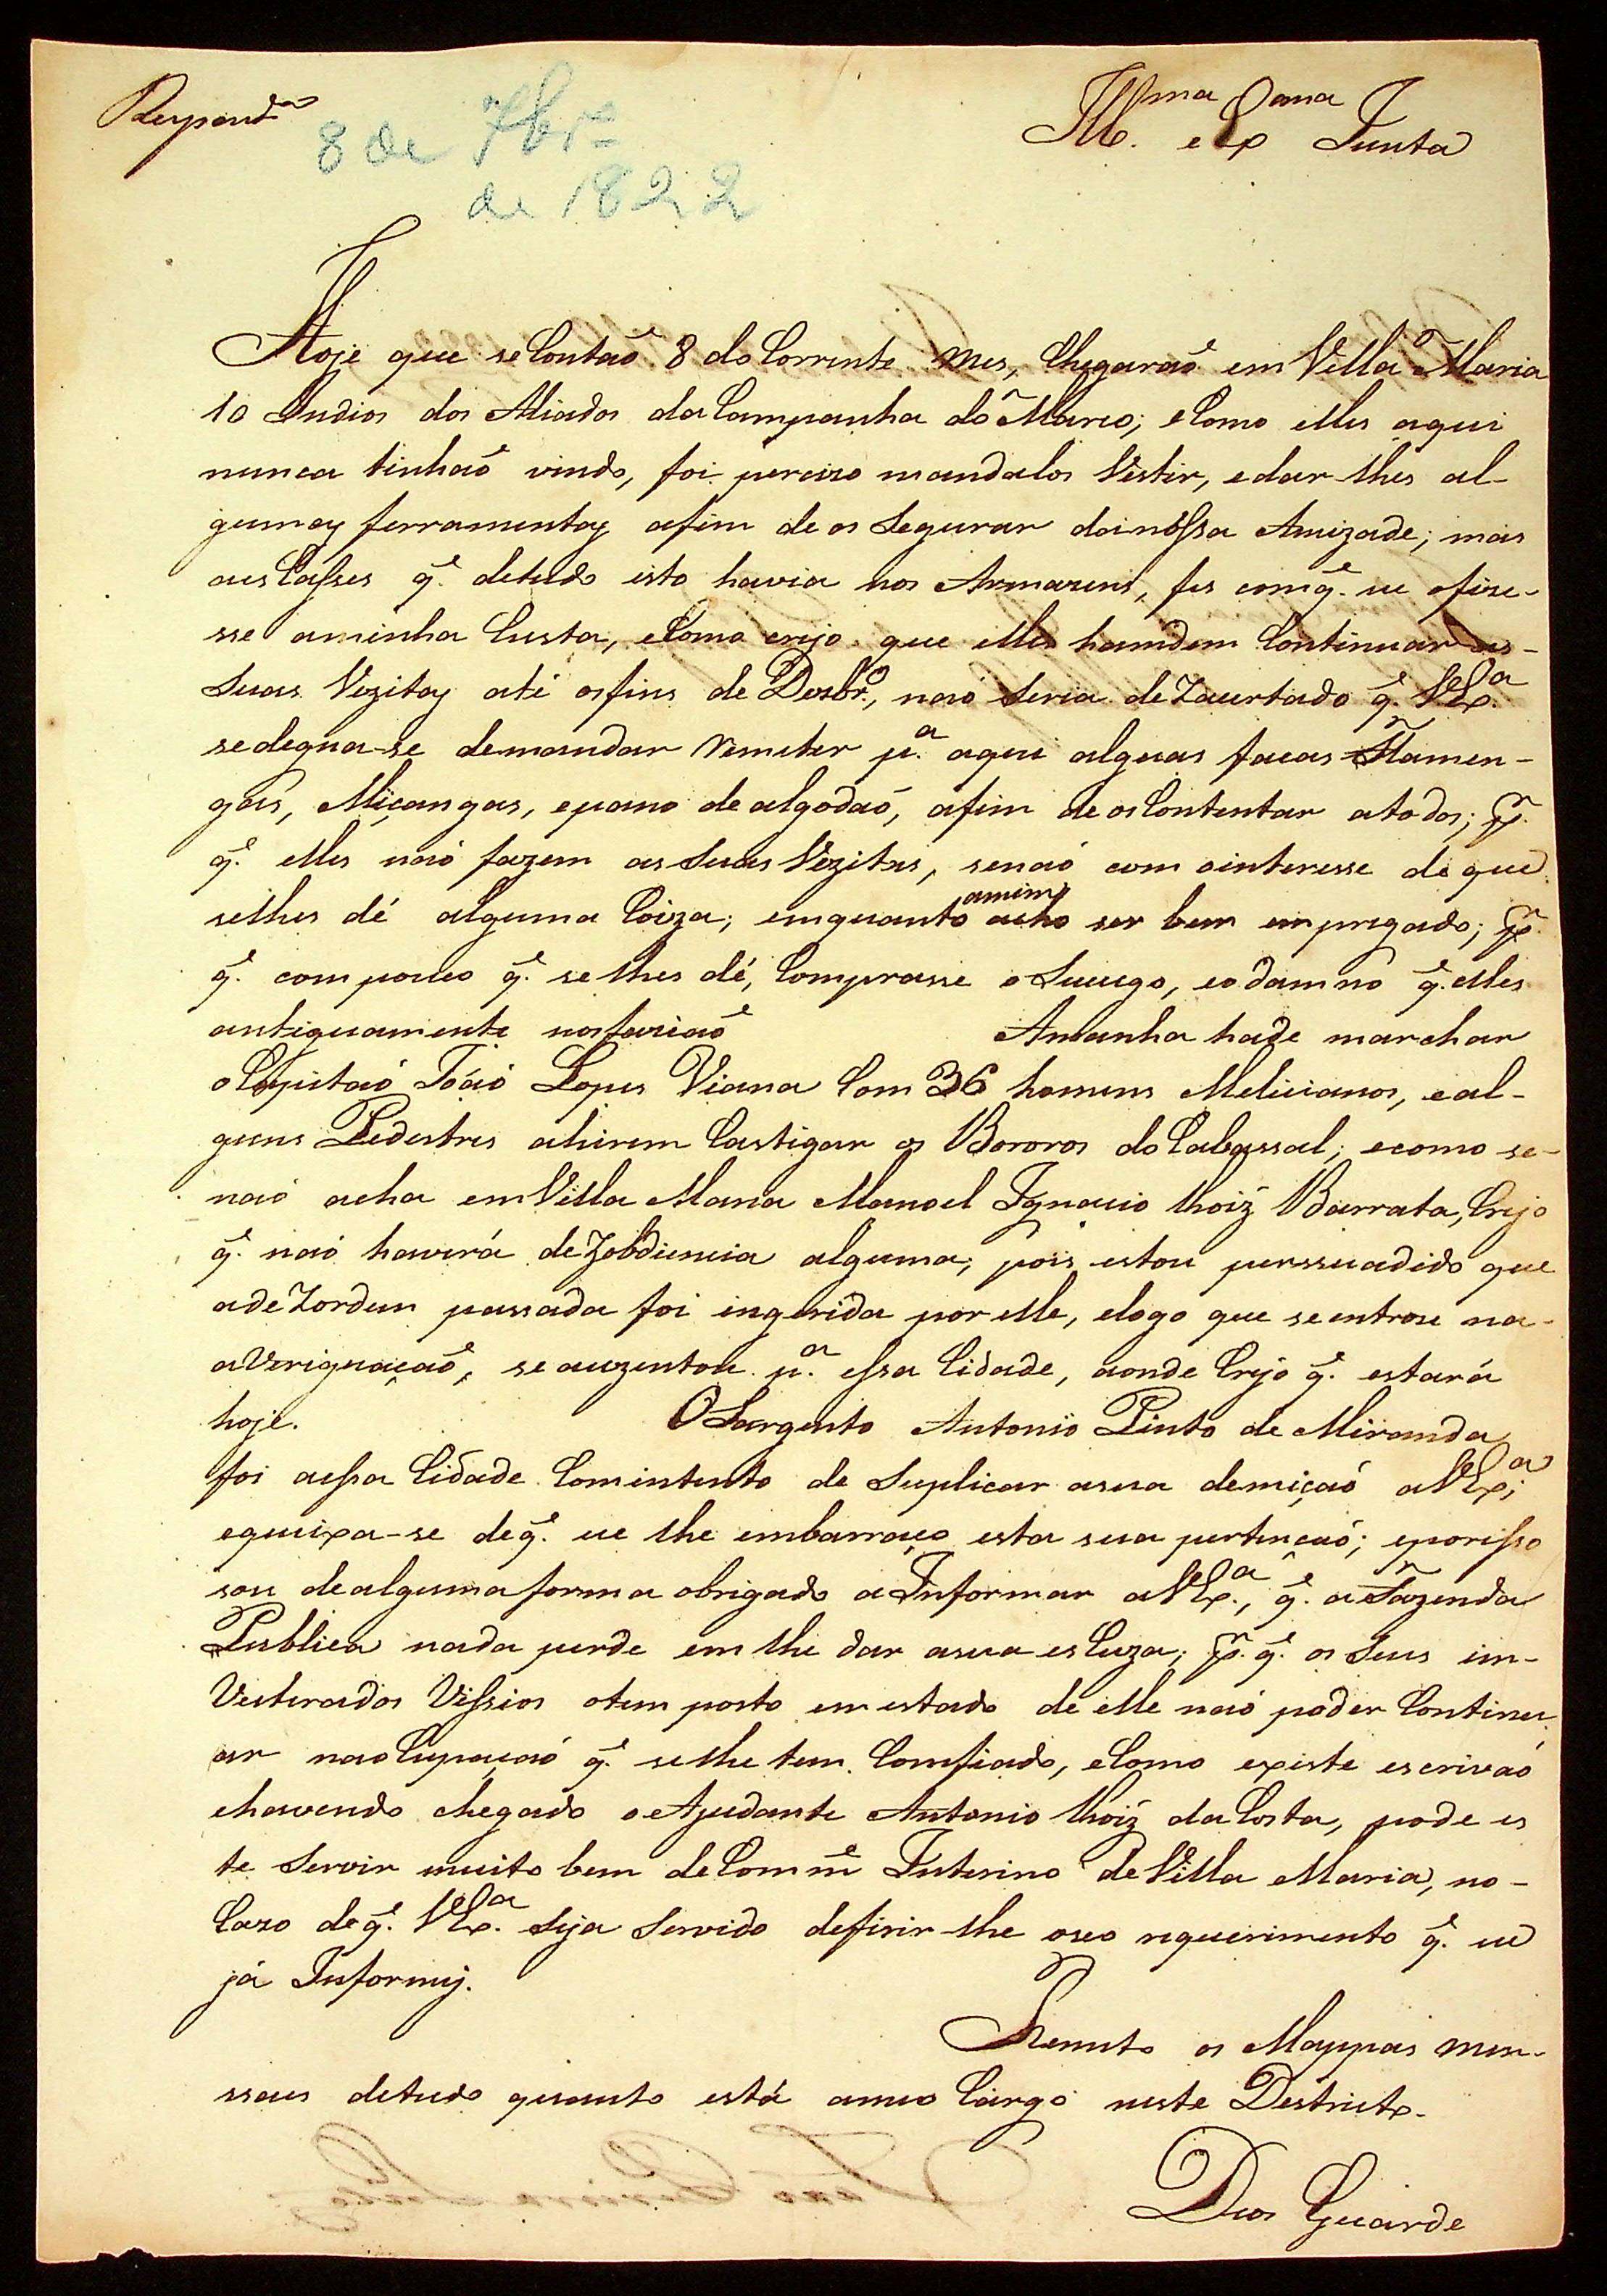 Respond.ª
8 de 7br.º
de 1822
Ill.ma e Ex.ma Junta
Hoje que se Contaõ 8 do Corrente mes, Chegaraõ em Villa Maria
10 Indios dos Aliados da Campanha do Mario; e Como elles aqui
nunca tinhaõ vindo, foi percizo mandalos Vestir, e dar-lhes al-
gumas ferramentas afim de os Segurar da nóssa Amizade; mas
aes Casses q.e detudo isto havia nos Armazens, fes comq.e eu ofize-
sse aminha Custa, eComo crejo que elles hamdem Continuar as-
Suas Vezitas até osfins de Dezbr.º, naõ Seria deZacertado q.e VEx.ª
sedegna-se demandar remeter p.ª aqui alguas facas Flamen-
gas, Miçangas, epano de algodaõ, afim de osContentar atodos; p.r
q.e elles naõ fazem as Suas Vezitas, senaõ com ointeresse de que
selhes dé alguma Coiza; emquanto amim acho ser bem empregado; p.r
q.e com pouco q.e se lhes dé, Comprasse o Sucego, eodamno q.e elles
antiguamente nosfaziaõ Amanha hade marchar
oCapitaõ Joaõ Lopes Viana Com 36 homens Melicianos, eal-
guns Pedestres ahirem Castigar os Bororos do Cabassal; ecomo se-
naõ acha emVilla Maria Manoel Ignacio Roiz Barrata, Crejo
q.e naõ haverá deZobdiencia alguma; pois estou perssuadido que
adeZordem passada foi ingerida por elle, elogo que se entrou na-
aVeriguaçaõ, se auzentou p.ª essa Cidade, aonde Crejo q.e estará
hoje. O Sargento Antonio Pinto de Miranda
foi aessa Cidade Comintento de Suplicar asua demiçaõ aVEx.ª;
equeixa-se deq.e eu lhe embarraço esta sua pertençaõ; eporisso
sou dealguma forma obrigado a Informar aVEx.ª, q.e a Fazenda
Publica nada perde em lhe dar asua esCuza; p.r q.e os Seus in-
Veterados Vissios otem posto em estado de elle naõ poder Continu
ar naoCupaçaõ q.e selhe tem Comfiado, eComo existe escrivaõ
ehavendo chegado oAjudante Antonio Roiz daCosta, pode es
te Servir muito bem deComm.e Interino deVilla Maria, no-
Cazo deq.e VEx.ª Seja Servido defirir-lhe oseo requerimento q.e eu
já Informej.
Remeto os Mappas men-
ssaes detudo quanto está ameo Cargo neste Destricto.
Deos Guarde